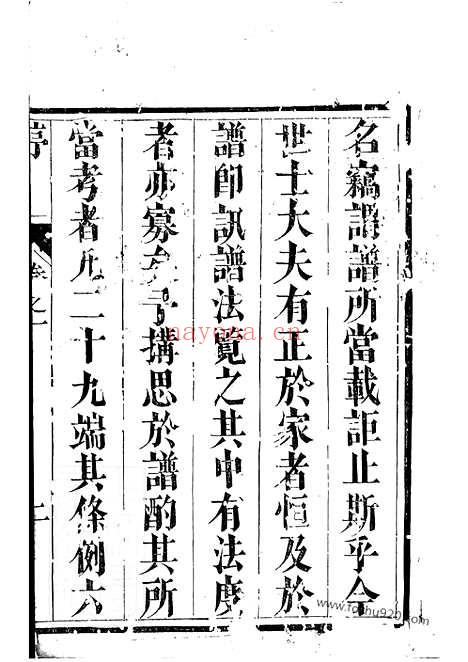 名竊謂譜所當載詎止斯乎今
世士大夫有正於家者恒及於
譜即訊譜法覽之其中有法度
者亦寡矣 搆思於譜酌其所
當考者凡二十九端其條例六
序
卷之一
二
nayona.cn
www.fozhu920.com